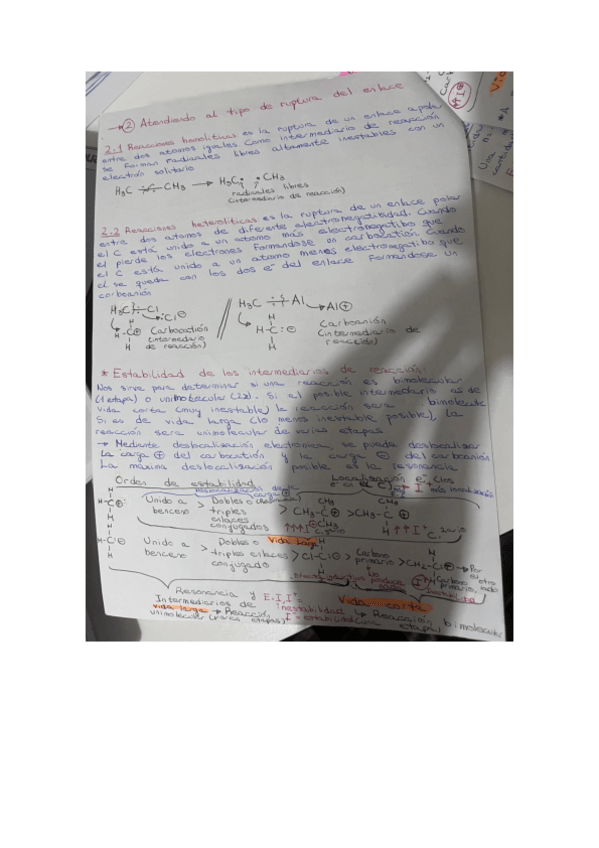 →② Atendiendo al tipo de ruptura del enlace
2.1 Reacciones homolíticas es la ruptura de un enlace apolar
entre dos atomos iguales Como intermediario de reacción
se forman radicales libres altamente inestables con un
electrón solitario
H₃C CH₃ → H₃C CH₃
radicales libres
(intermediario de reacción)
2.2 Reacciones heterolíticas es la ruptura de un enlace polar
entre dos atomos de diferente electromegatividad. Cuando
el C está unido a un atomo más electromegatibo que
el pierde los electrones Formandose un carbocatión Cuando
el C está unido a un atomo menos electromegatibo que
él se queda con los dos e⁻ del enlace Formandose un
carboanión
H₃C Cl
:Cl⊖
H
H-C⊕
H
Carbocatión
(intermediario
de reacción)
H₃C Al → Al⊕
H
H-C:⊖
H
Carboanión
(intermediario de
reacción)
* Estabilidad de los intermediarios de reacción:
Nos sirve para determinar si una reacción es bimolecular
(1 etapa) o unimolecular (2x). Si el posible intermediario es de
vida corta (muy inestable) la reacción será bimolecular
Si es de vida larga (lo menos inestable posible), la
reacción sera unimolecular de varias etapas
→ Mediante deslocalización electronica, se puede deslocalizar
la carga ⊕ del carbocatión y la carga ⊖ del carboanión
La máxima deslocalización posible es la resonancia
Orden de estabilidad
Localización e⁻
H
H-C⊕
H
Unido a
benceno
> Dobles o
triples
enlaces
conjugados
CH₃
> CH₃-C⊕
CH₃
CH₃
> CH₃-C⊕
H
H
H-C:⊖
H
Unido a
benceno
> Dobles o
triples enlaces
conjugado
Vida larga
> Carbono
primario
> CH₂-C:⊖
Resonancia y
Intermediarios de
vida larga → Reacción
unimolecular (varias etapas)
inestabilidad
I⁺ = estabilidad
Vida corta
↳ Reacción bimolecular
etapa)